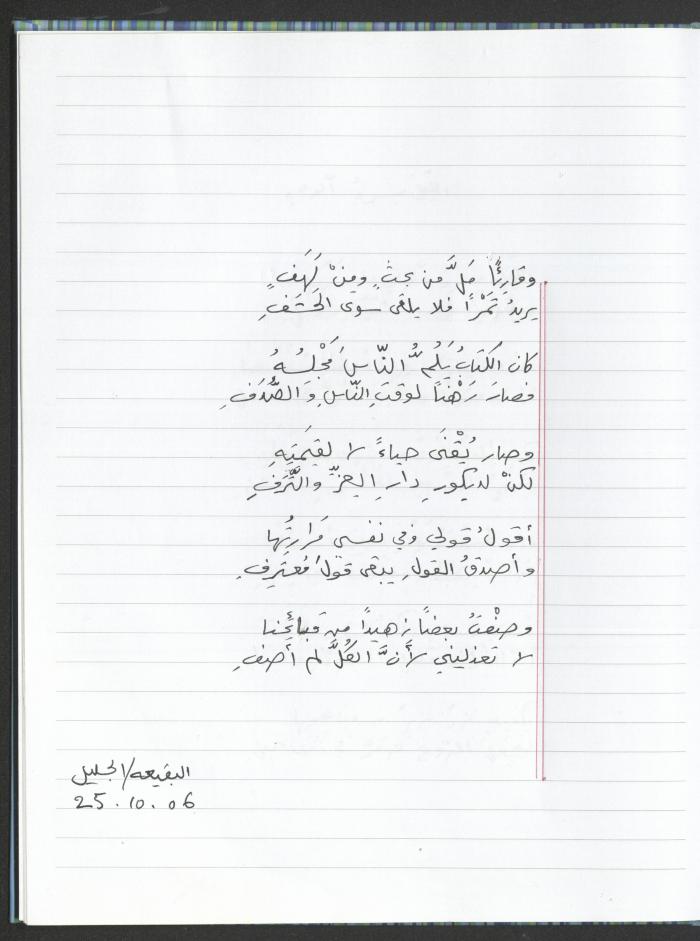 وقارِئًا مَلَّ من بحثٍ ومِنْ لَهَفٍ
يريدُ تَمْرًا فلا يلقى سوى الحَشَفِ
كان الكتابُ يَلُمُّ النّاسَ مَجْلسُهُ
فصارَ رَهْنًا لوقتِ النّاسِ وَالصُّدَفِ
وصار يُقْنَى حياءً لا لقيمَتِهِ
لكنْ لديكورِ دارِ العِزِّ والتَّرَفِ
أقولُ قولي وفي نفسي مَرارتُها
وأصدقُ القولِ يبقى قولُ مُعتَرِفِ
وصفْتُ بعضًا زهيدًا من قبائِحنا
لا تعذليني لأنَّ الكُلَّ لم أصفِ
البقيعه/الجليل
25.10.06